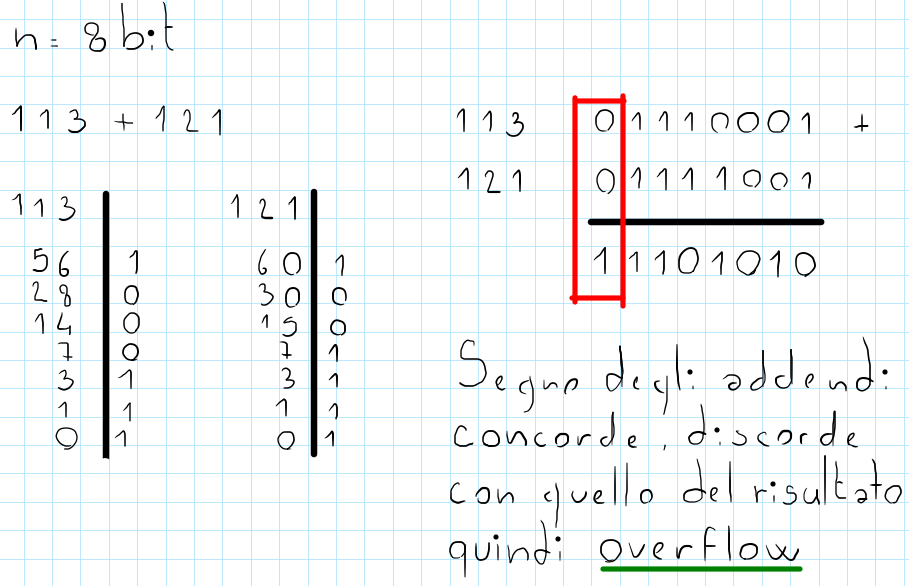 n = 8 bit
113 + 121
113
56 1
28 0
14 0
7 0
3 1
1 1
0 1
121
60 1
30 0
15 0
7 1
3 1
1 1
0 1
113 01110001 +
121 01111001
11101010
Segno degli addendi
concorde, discorde
con quello del risultato
quindi overflow